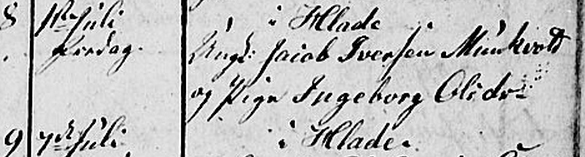 8 1ste Juli i Hlade
Fredag Ungk: Jacob Iversen Munkvold
og Pige Ingeborg Olsdr
9 7de Juli i Hlade